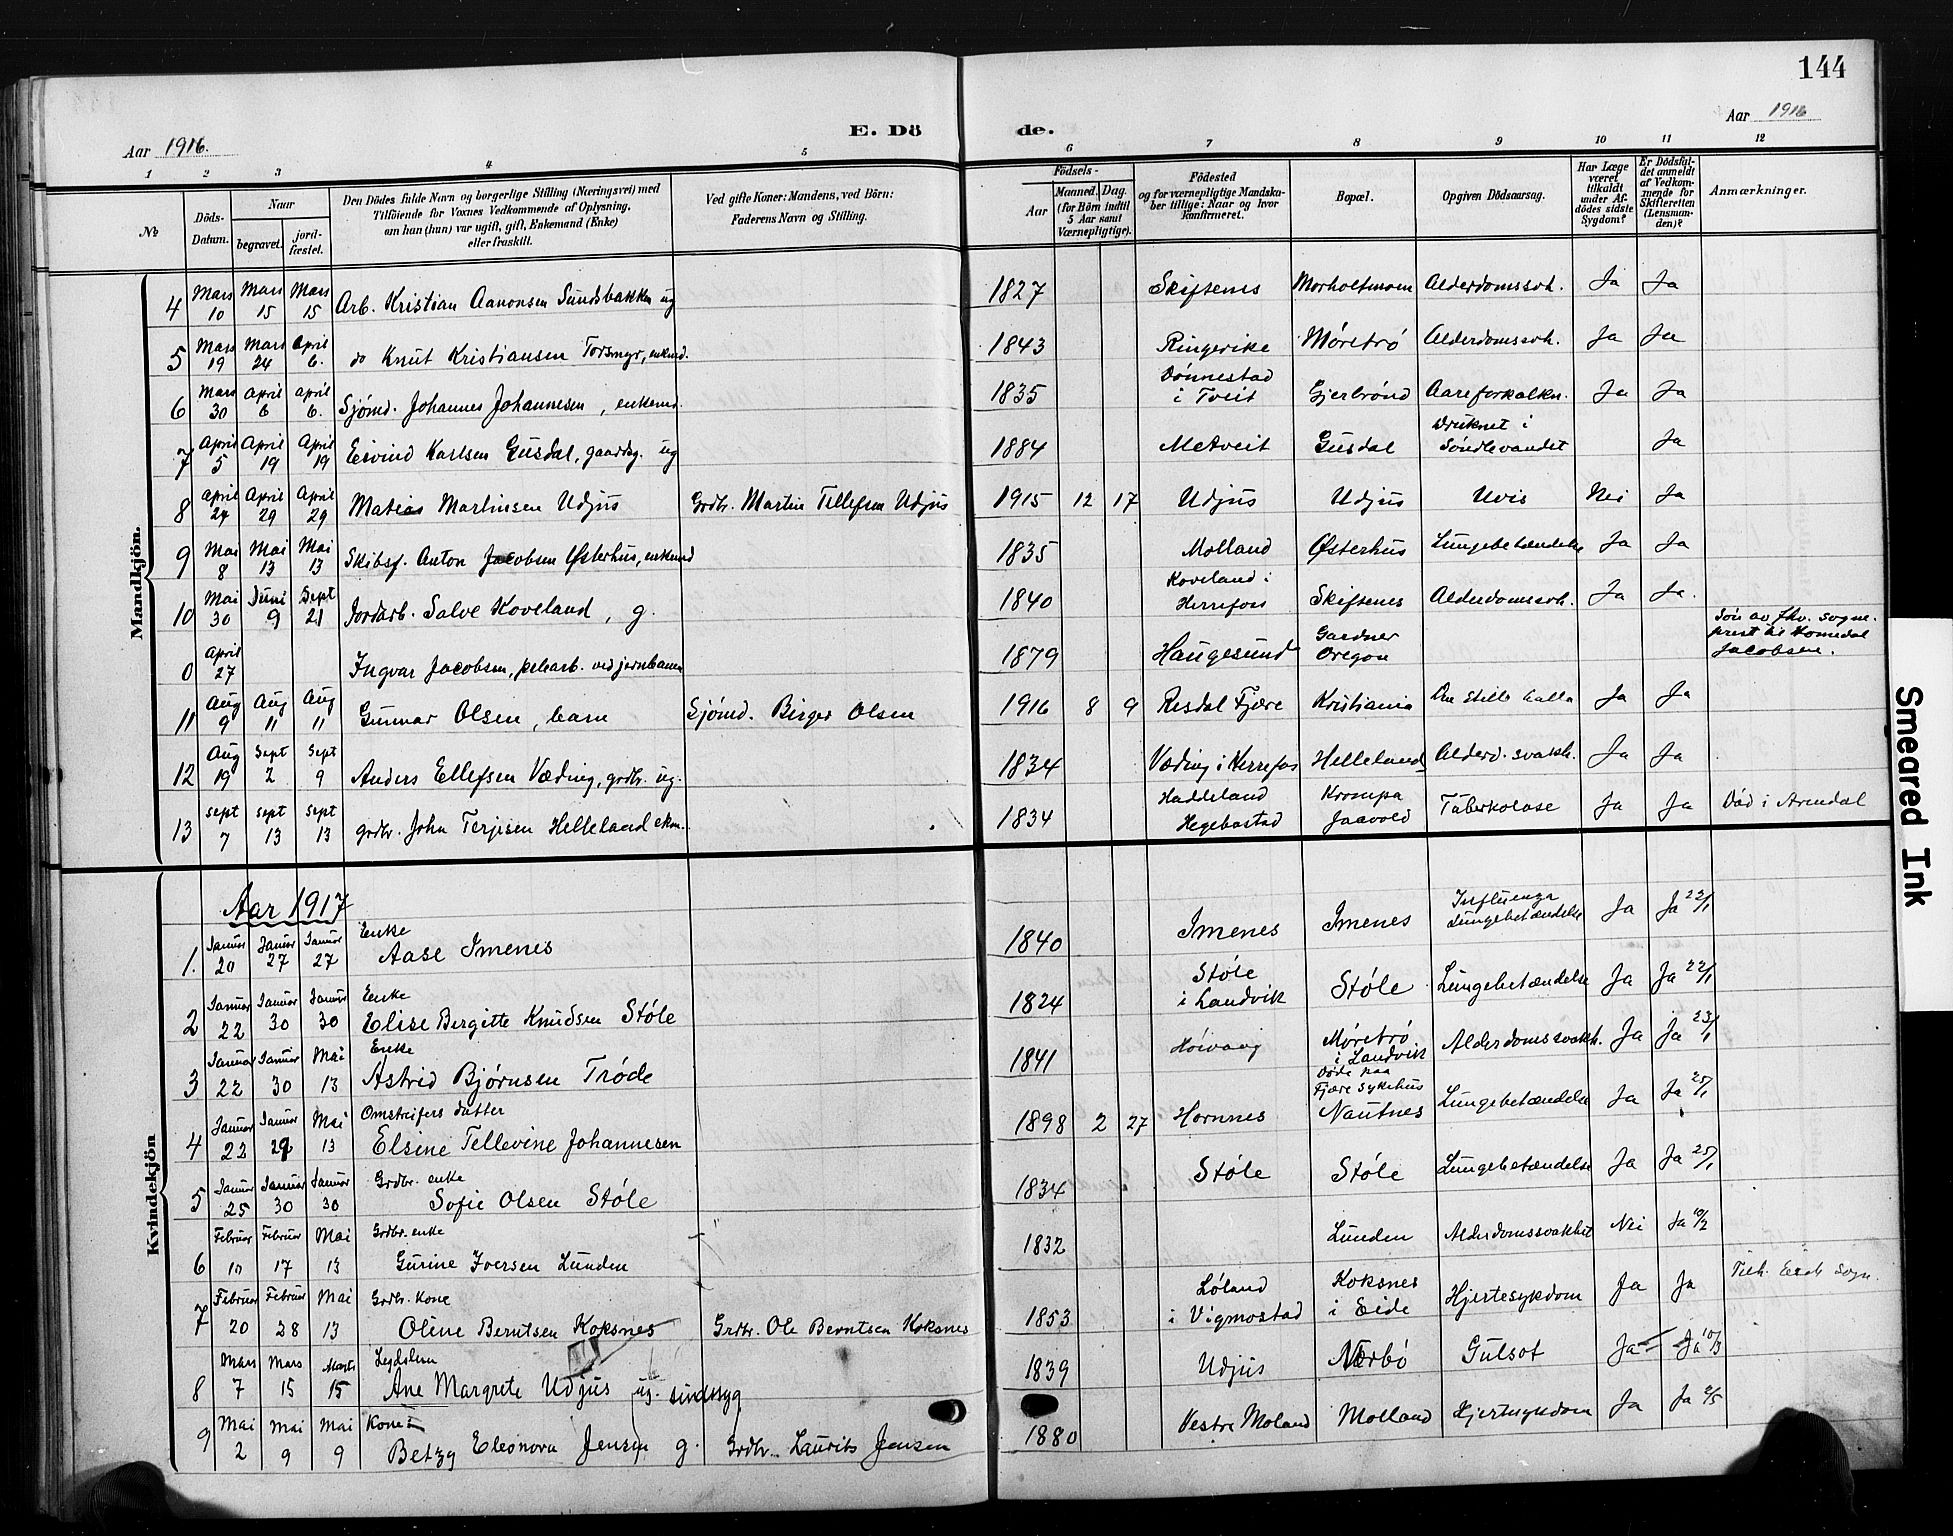 144
E. Dö de.
Aar 1916.
Aar 1916
1 2 3 4 5 6 7 8 9 10 11 12
№
Döds-Datum.
Naar
begravet.
jord-fæstet.
Den Dödes fulde Navn og borgerlige Stilling (Næringsvei) med
Tilföiende for Voxnes Vedkommende af Oplysning,
om han (hun) var ugift, gift, Enkemand (Enke)
eller fraskilt.
Ved gifte Koner: Mandens, ved Börn:
Faderens Navn og Stilling.
Födsels-
Aar
Maaned. Dag.
(for Börn indtil
5 Aar samt
Værnepligtige).
Födested
og for værnepligtige Mandska-
ber tillige: Naar og hvor
konfirmeret.
Bopæl.
Opgiven Dödsaarsag.
Har Læge
været
tilkaldt
under Af-
dödes sidste
Sygdom?
Er Dödsfal-
det anmeldt
af Vedkom-
mende for
Skifteretten
(Lensman-
den)?
Anmærkninger.
Mandkjön.
4 Mars 10 Mars 15 Mars 15 Arb. Kristian Aanonsen Sundsbakken ug 1827 Skiftenes Morholtmoen Alderdomssvh. Ja Ja
5 Mars 19 Mars 24 April 6. do Knut Kristiansen Torsmyr, enkmd. 1843 Ringerike Møretrø Alderdomssvh. Ja Ja
6 Mars 30 April 6 April 6. Sjømd. Johannes Johannesen, enkemd. 1835 Dønnestad i Tveit Gjerbrønd Aareforkalkn. Ja Ja
7 April 5 April 19 April 19 Eivind Karlsen Gusdal, gaardbg. ug 1884 Metveit Gusdal Druknet i Søndlevandet Ja
8 April 24 April 29 April 29 Matias Martinsen Udjus Grdbr. Martin Tellefsen Udjus 1915 12 17 Udjus Udjus Uvis Nei Ja
9 Mai 8 Mai 13 Mai 13 Skibsf. Anton Jacobsen Østerhus, enkemd 1835 Molland Østerhus Lungebetændelse Ja Ja
10 Mai 30 Juni 9 Sept 21 Jordarb. Salve Koveland, g. 1840 Koveland i Herrefoss Skiftenes Alderdomssvh. Ja Ja.
0 April 27 Ingvar Jacobsen, pelearb. ved jernbanen 1879 Haugesund Gardner Oregon Søn av fhv. sogne-prest til Homedal Jacobsen.
11 Aug 9 Aug 11 Aug 11 Gunnar Olsen, barn Sjømd. Birger Olsen 1916 8 9 Resdal Fjære Kristiania Ja Ja
12 Aug 19 Sept 2 Sept 9 Anders Ellefsen Væding, grdbr. ug. 1834 Væding i Herrefos Helleland Alderd. svakh. Ja Ja
13 Sept 7 Sept 13 Sept 13 grdbr. John Terjesen Helleland ekm. 1834 Haddeland Hegebostad Krompa Jaavold Tuberkolose Ja Ja Død i Arendal
Kvindekjön
Aar 1917
1. Januar 20 Januar 27 Januar 27 Enke Aase Imenes 1840 Imenes Imenes Influenza Lungebetændelse Ja Ja 22/1
2 Januar 22 Januar 30 Januar 30 Enke Elise Bergitte Knudsen Støle 1824 Støle i Landvik Støle Lungebetændelse Ja Ja 22/1
3 Januar 22 Januar 30 Mai 13 Enke Astrid Bjørnsen Trøde 1841 Høivaag Møretrø i Landvik Alderdomssvakh. Ja Ja 23/1
4 Januar 23 Januar 29 Mai 13 Omstreifers datter Elsine Tellevine Johannesen 1898 2 27 Hornnes Døde paa Fjære sykehus Nautnes Lungebetændelse Ja Ja 25/1
5 Januar 25 Januar 30 Januar 30 Grdbr. enke Sofie Olsen Støle 1834 Støle Støle Lungebetændelse Ja Ja 25/1
6 Februar 10 Februar 17 Mai 13 Grdbr. enke Gurine Iversen Lunden 1832 Lunden Alderdomssvakhet Nei Ja
7 Februar 20 Februar 28 Mai 13 Grdbr. kone Oline Berntsen Koksnes Grdbr. Ole Berntsen Koksnes 1853 Løland i Vigmostad Koksnes i Eide Hjertesykdom Ja Ja Tilh. Eide Sogn.
8 Mars 7 Mars 15 Marts 15 Legdslem Ane Margrete Udjus ug. sindssyg 1839 Udjus Nærbø Gulsot Ja Ja 10/3
9 Mai 2 Mai 9 Mai 9 Kone Betzy Eleonora Jensen g. Grdbr. Laurits Jensen 1880 Vestre Moland Molland Hjertesykdom Ja Ja 2/5
Smeared Ink